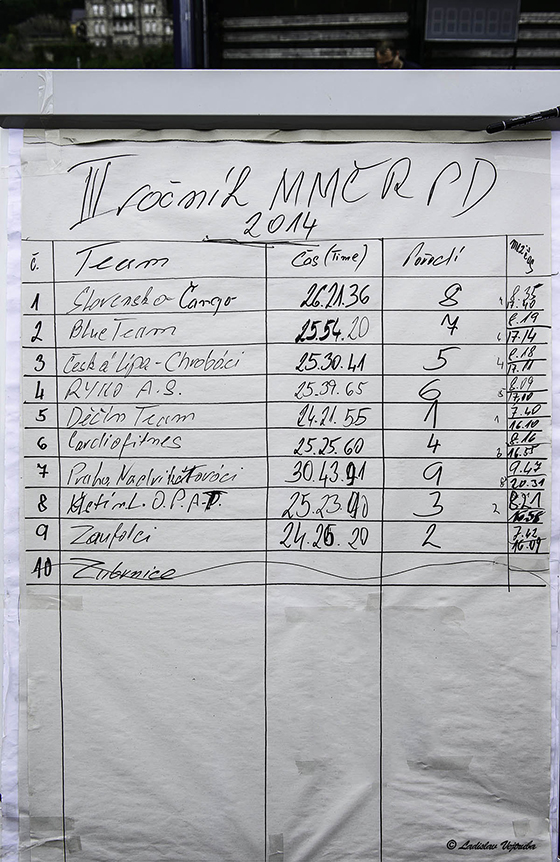 III ročník MMČR PD
2014
č. Team Čas (Time) Pořadí
1 Slovensko Čango 26.21.36 8
2 Blue Team 25.54.20 7 8.19 17.14
3 Česká Lípa - Chrobáci 25.30.41 5 8.18 17.11
4 RYKO A.S. 25.39.65 6 8.09 17,00
5 Děčín Team 24.21.55 1 7.40 16.10
6 Cardiofitnes 25.25.60 4 8.16 16.55
7 Praha 30.43.91 9 9.47 20.31
8 O.P.A.T. 25.23.90 3 16.58
9 Zaufalci 24.26.20 2 7.42 16.09
10 Zubrnice
© Ladislav Vojtuba